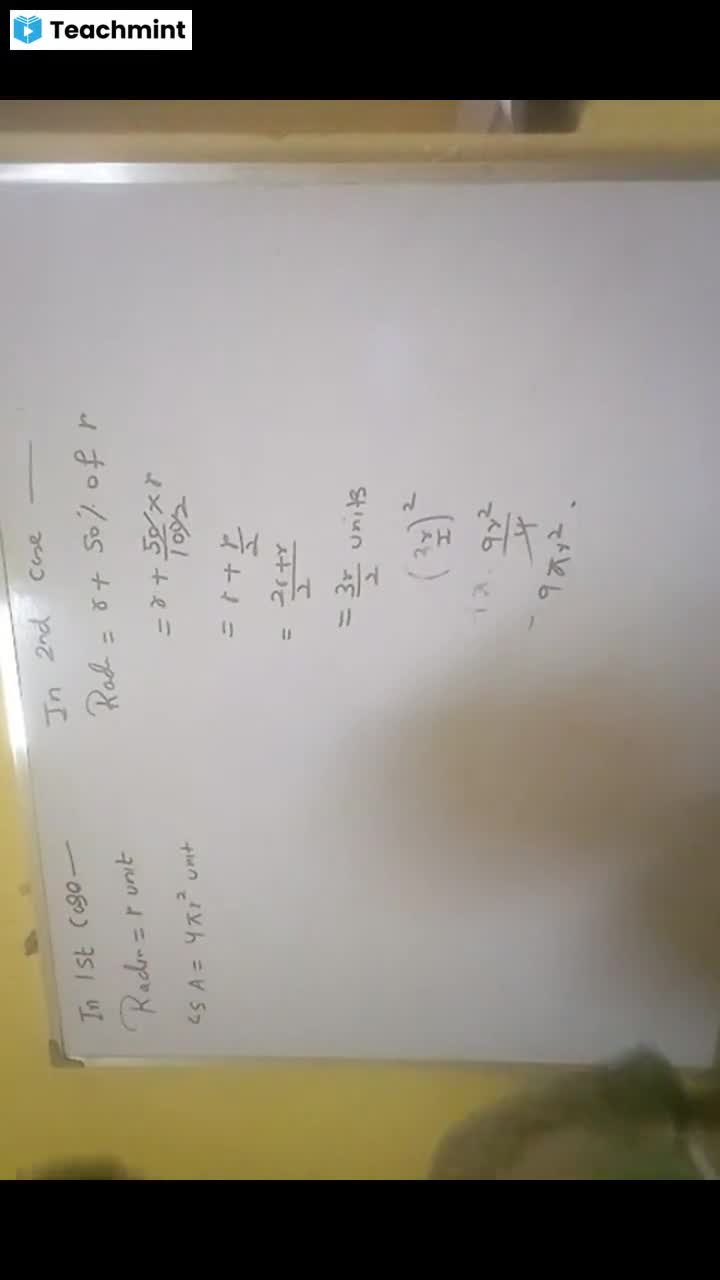 Teachmint
In 1st Case —
Radir = r unit
CSA = 4πr² unit
In 2nd Case —
Rad = r + 50% of r
= r + 50/100 2 × r
= r + r/2
= 2r+r/2
= 3r/2 units
(3r/2)²
9r²/4
- 9πr².